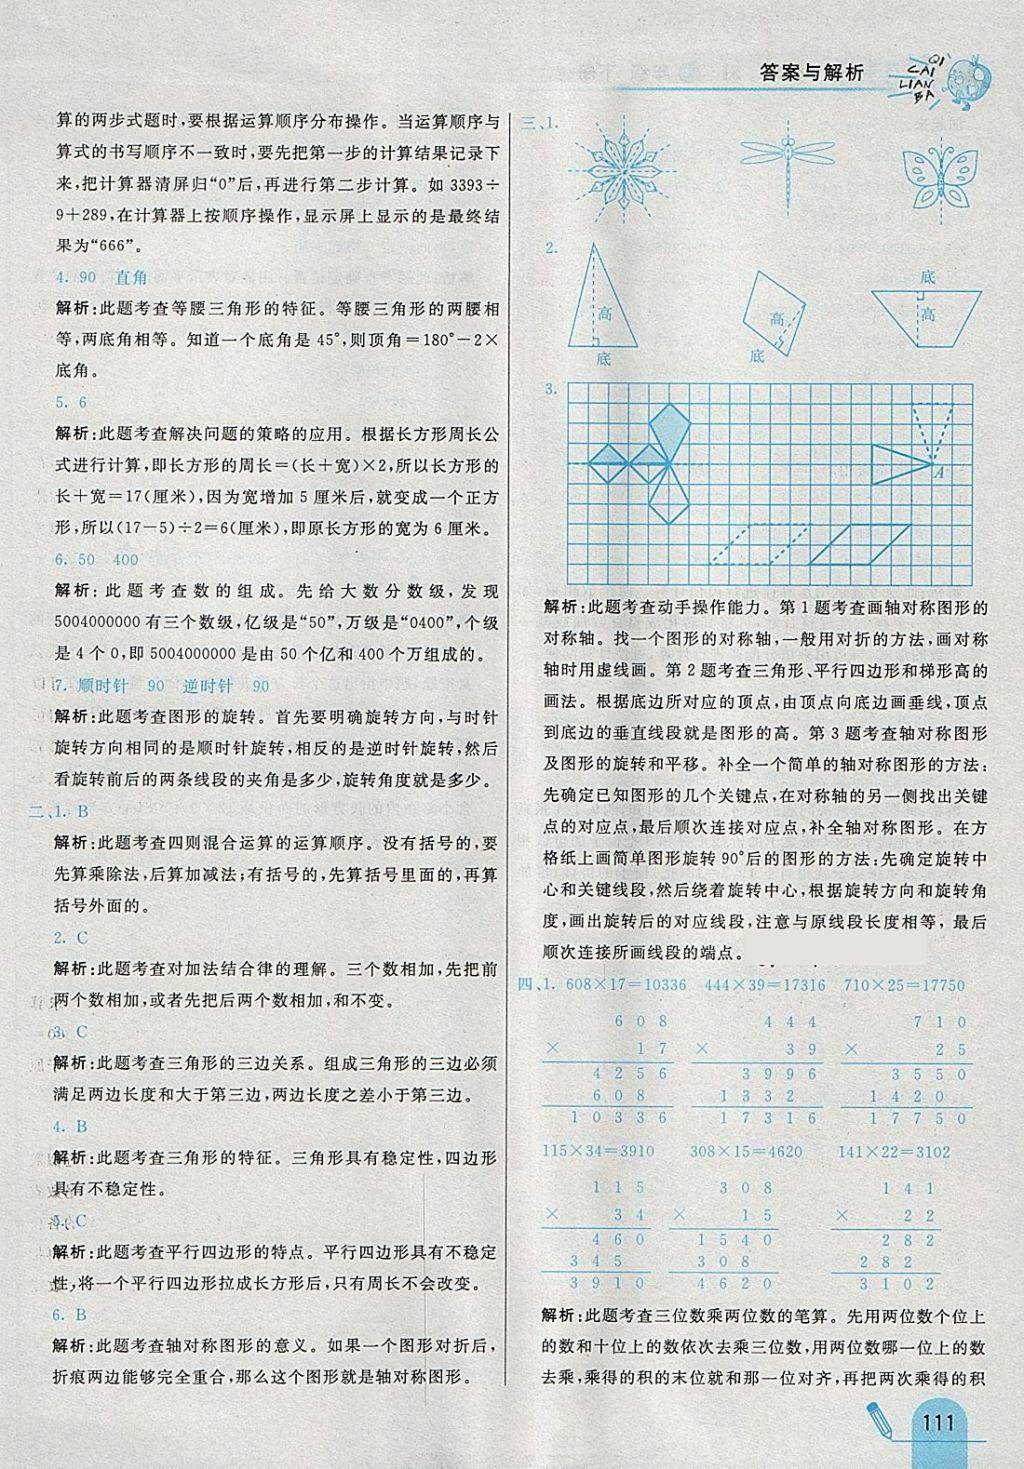 答案与解析
QI
CAI
LIAN
BA
算的两步式题时,要根据运算顺序分布操作。当运算顺序与
算式的书写顺序不一致时,要先把第一步的计算结果记录下
来,把计算器清屏归“0”后,再进行第二步计算。如 3393÷
9+289,在计算器上按顺序操作,显示屏上显示的是最终结
果为“666”。
4. 90 直角
解析:此题考查等腰三角形的特征。等腰三角形的两腰相
等,两底角相等。知道一个底角是 45°,则顶角=180°-2×
底角。
5. 6
解析:此题考查解决问题的策略的应用。根据长方形周长公
式进行计算,即长方形的周长=(长+宽)×2,所以长方形的
长+宽=17(厘米),因为宽增加 5 厘米后,就变成一个正方
形,所以(17-5)÷2=6(厘米),即原长方形的宽为 6 厘米。
6. 50 400
解析:此题考查数的组成。先给大数分数级,发现
5004000000 有三个数级,亿级是“50”,万级是“0400”,个级
是 4 个 0,即 5004000000 是由 50 个亿和 400 个万组成的。
7. 顺时针 90 逆时针 90
解析:此题考查图形的旋转。首先要明确旋转方向,与时针
旋转方向相同的是顺时针旋转,相反的是逆时针旋转,然后
看旋转前后的两条线段的夹角是多少,旋转角度就是多少。
二、1. B
解析:此题考查四则混合运算的运算顺序。没有括号的,要
先算乘除法,后算加减法;有括号的,先算括号里面的,再算
括号外面的。
2. C
解析:此题考查对加法结合律的理解。三个数相加,先把前
两个数相加,或者先把后两个数相加,和不变。
3. C
解析:此题考查三角形的三边关系。组成三角形的三边必须
满足两边长度和大于第三边,两边长度之差小于第三边。
4. B
解析:此题考查三角形的特征。三角形具有稳定性,四边形
具有不稳定性。
5. C
解析:此题考查平行四边形的特点。平行四边形具有不稳定
性,将一个平行四边形拉成长方形后,只有周长不会改变。
6. B
解析:此题考查轴对称图形的意义。如果一个图形对折后,
折痕两边能够完全重合,那么这个图形就是轴对称图形。
三、1.
2.
高
底
高
底
底
高
3.
A
解析:此题考查动手操作能力。第 1 题考查画轴对称图形的
对称轴。找一个图形的对称轴,一般用对折的方法,画对称
轴时用虚线画。第 2 题考查三角形、平行四边形和梯形高的
画法。根据底边所对应的顶点,由顶点向底边画垂线,顶点
到底边的垂直线段就是图形的高。第 3 题考查轴对称图形
及图形的旋转和平移。补全一个简单的轴对称图形的方法:
先确定已知图形的几个关键点,在对称轴的另一侧找出关键
点的对应点,最后顺次连接对应点,补全轴对称图形。在方
格纸上画简单图形旋转 90°后的图形的方法:先确定旋转中
心和关键线段,然后绕着旋转中心,根据旋转方向和旋转角
度,画出旋转后的对应线段,注意与原线段长度相等,最后
顺次连接所画线段的端点。
四、1. 608×17=10336 444×39=17316 710×25=17750
6 0 8 4 4 4 7 1 0
× 1 7 × 3 9 × 2 5
4 2 5 6 3 9 9 6 3 5 5 0
6 0 8 1 3 3 2 1 4 2 0
1 0 3 3 6 1 7 3 1 6 1 7 7 5 0
115×34=3910 308×15=4620 141×22=3102
1 1 5 3 0 8 1 4 1
× 3 4 × 1 5 × 2 2
4 6 0 1 5 4 0 2 8 2
3 4 5 3 0 8 2 8 2
3 9 1 0 4 6 2 0 3 1 0 2
解析:此题考查三位数乘两位数的笔算。先用两位数个位上
的数和十位上的数依次去乘三位数,用两位数哪一位上的数
去乘,乘得的积的末位就和那一位对齐,再把两次乘得的积
111